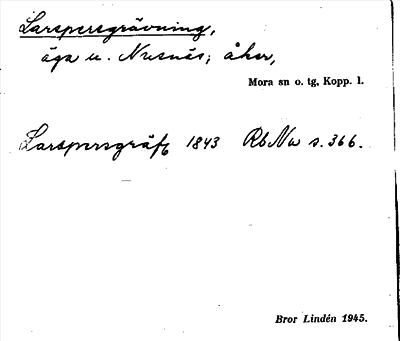 Larspersgrävning,
äga u. Nusnäs; åker,
Mora sn o. tg, Kopp. l.
Larspersgräfv 1843 RbNw s. 366.
Bror Lindén 1945.